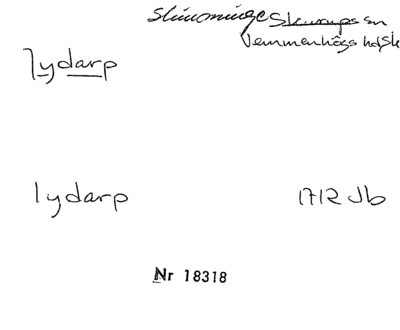 Slimminge Skurups sn
Vemmenhögs hd, Sk
lydarp
lydarp 1712 Jb
Nr 18318